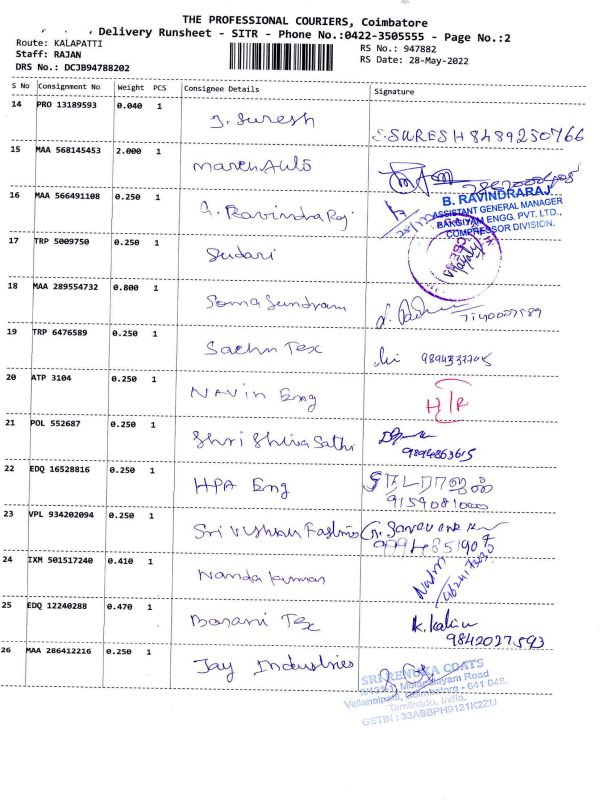 THE PROFESSIONAL COURIERS, Coimbatore
Delivery Runsheet - SITR - Phone No.:0422-3505555 - Page No.:2
Route: KALAPATTI
Staff: RAJAN
DRS No.: DCJB94788202
RS No.: 947882
RS Date: 28-May-2022
S No Consignment No Weight PCS Consignee Details Signature
14 PRO 13189593 0.040 1 J. Suresh S.SURESH 8489250766
15 MAA 568145453 2.000 1
16 MAA 566491108 0.250 1 G. Ravindraraj
B. RAVINDRARAJ
ASSISTANT GENERAL MANAGER
BAKGIYAM ENGG. PVT. LTD.,
COMPRESSOR DIVISION.
17 TRP 5009750 0.250 1
18 MAA 289554732 0.800 1 Soma Sundram
19 TRP 6476589 0.250 1 Sachn Tex
20 ATP 3104 0.250 1 Navin Eng H/R
21 POL 552687 0.250 1 Shri Shiva Sathi 9894863615
22 EDQ 16528816 0.250 1 HPA Eng
23 VPL 934202094 0.250 1
24 IXM 501517240 0.410 1 Nanda kumar
25 EDQ 12240288 0.470 1 Barani Tex K. Kalai
9842027593
26 MAA 286412216 0.250 1 Jay Industries
SRI RENUKA COATS
Vellanaipatti, Coimbatore - 641 048.
Tamilnadu, India.
GSTIN : 33ABBPH9121K2ZU